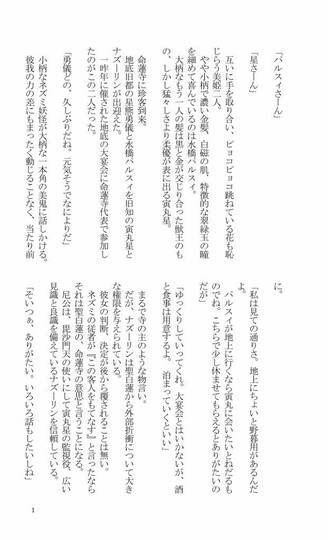 「パルスィさーん」
「星さーん」
互いに手を取り合い、ピョコピョコ跳ねている花も恥
じらう美姫二人。
やや小柄で濃い金髪、白磁の肌、特徴的な翠緑玉の瞳
を細めて喜んでいるのは水橋パルスィ。
大柄なもう一人の髪は黒と金が交じり合った獣王のも
の、しかし猛々しさより柔優が表に出る寅丸星。
命蓮寺に珍客到来。
地底旧都の星熊勇儀と水橋パルスィを旧知の寅丸星と
ナズーリンが出迎えた。
一昨年に催された地底の大宴会に命蓮寺代表で参加し
たのがこの二人だった。
「勇儀どの、久しぶりだね。元気そうでなによりだ」
小柄なネズミ妖怪が大柄な一本角の美鬼に話しかける。
彼我の力の差にもまったく動じることなく、当たり前
に。
「私は見ての通りさ。地上にちょいと野暮用があるんだ
よ。
パルスィが地上に行くなら寅丸に会いたいとねだるも
のでね。こちらで少し休ませてもらえるとありがたいの
だが」
「ゆっくりしていってくれ。大宴会とはいかないが、酒
と食事は用意するよ。泊まっていくといい」
まるで寺の主のような物言い。
だが、ナズーリンは聖白蓮から外部折衝について大き
な権限を与えられている。
彼女の判断、決定が後から覆されることは無い。
ネズミの従者が『この客人をもてなす』と言ったなら
それは聖白蓮の、命蓮寺の意思と言うことになる。
尼公は、毘沙門天の使いにして寅丸星の監視役、広い
見識と良識を備えているナズーリンを信頼している。
「そいつぁ、ありがたい。いろいろ話もしたいしね」
1